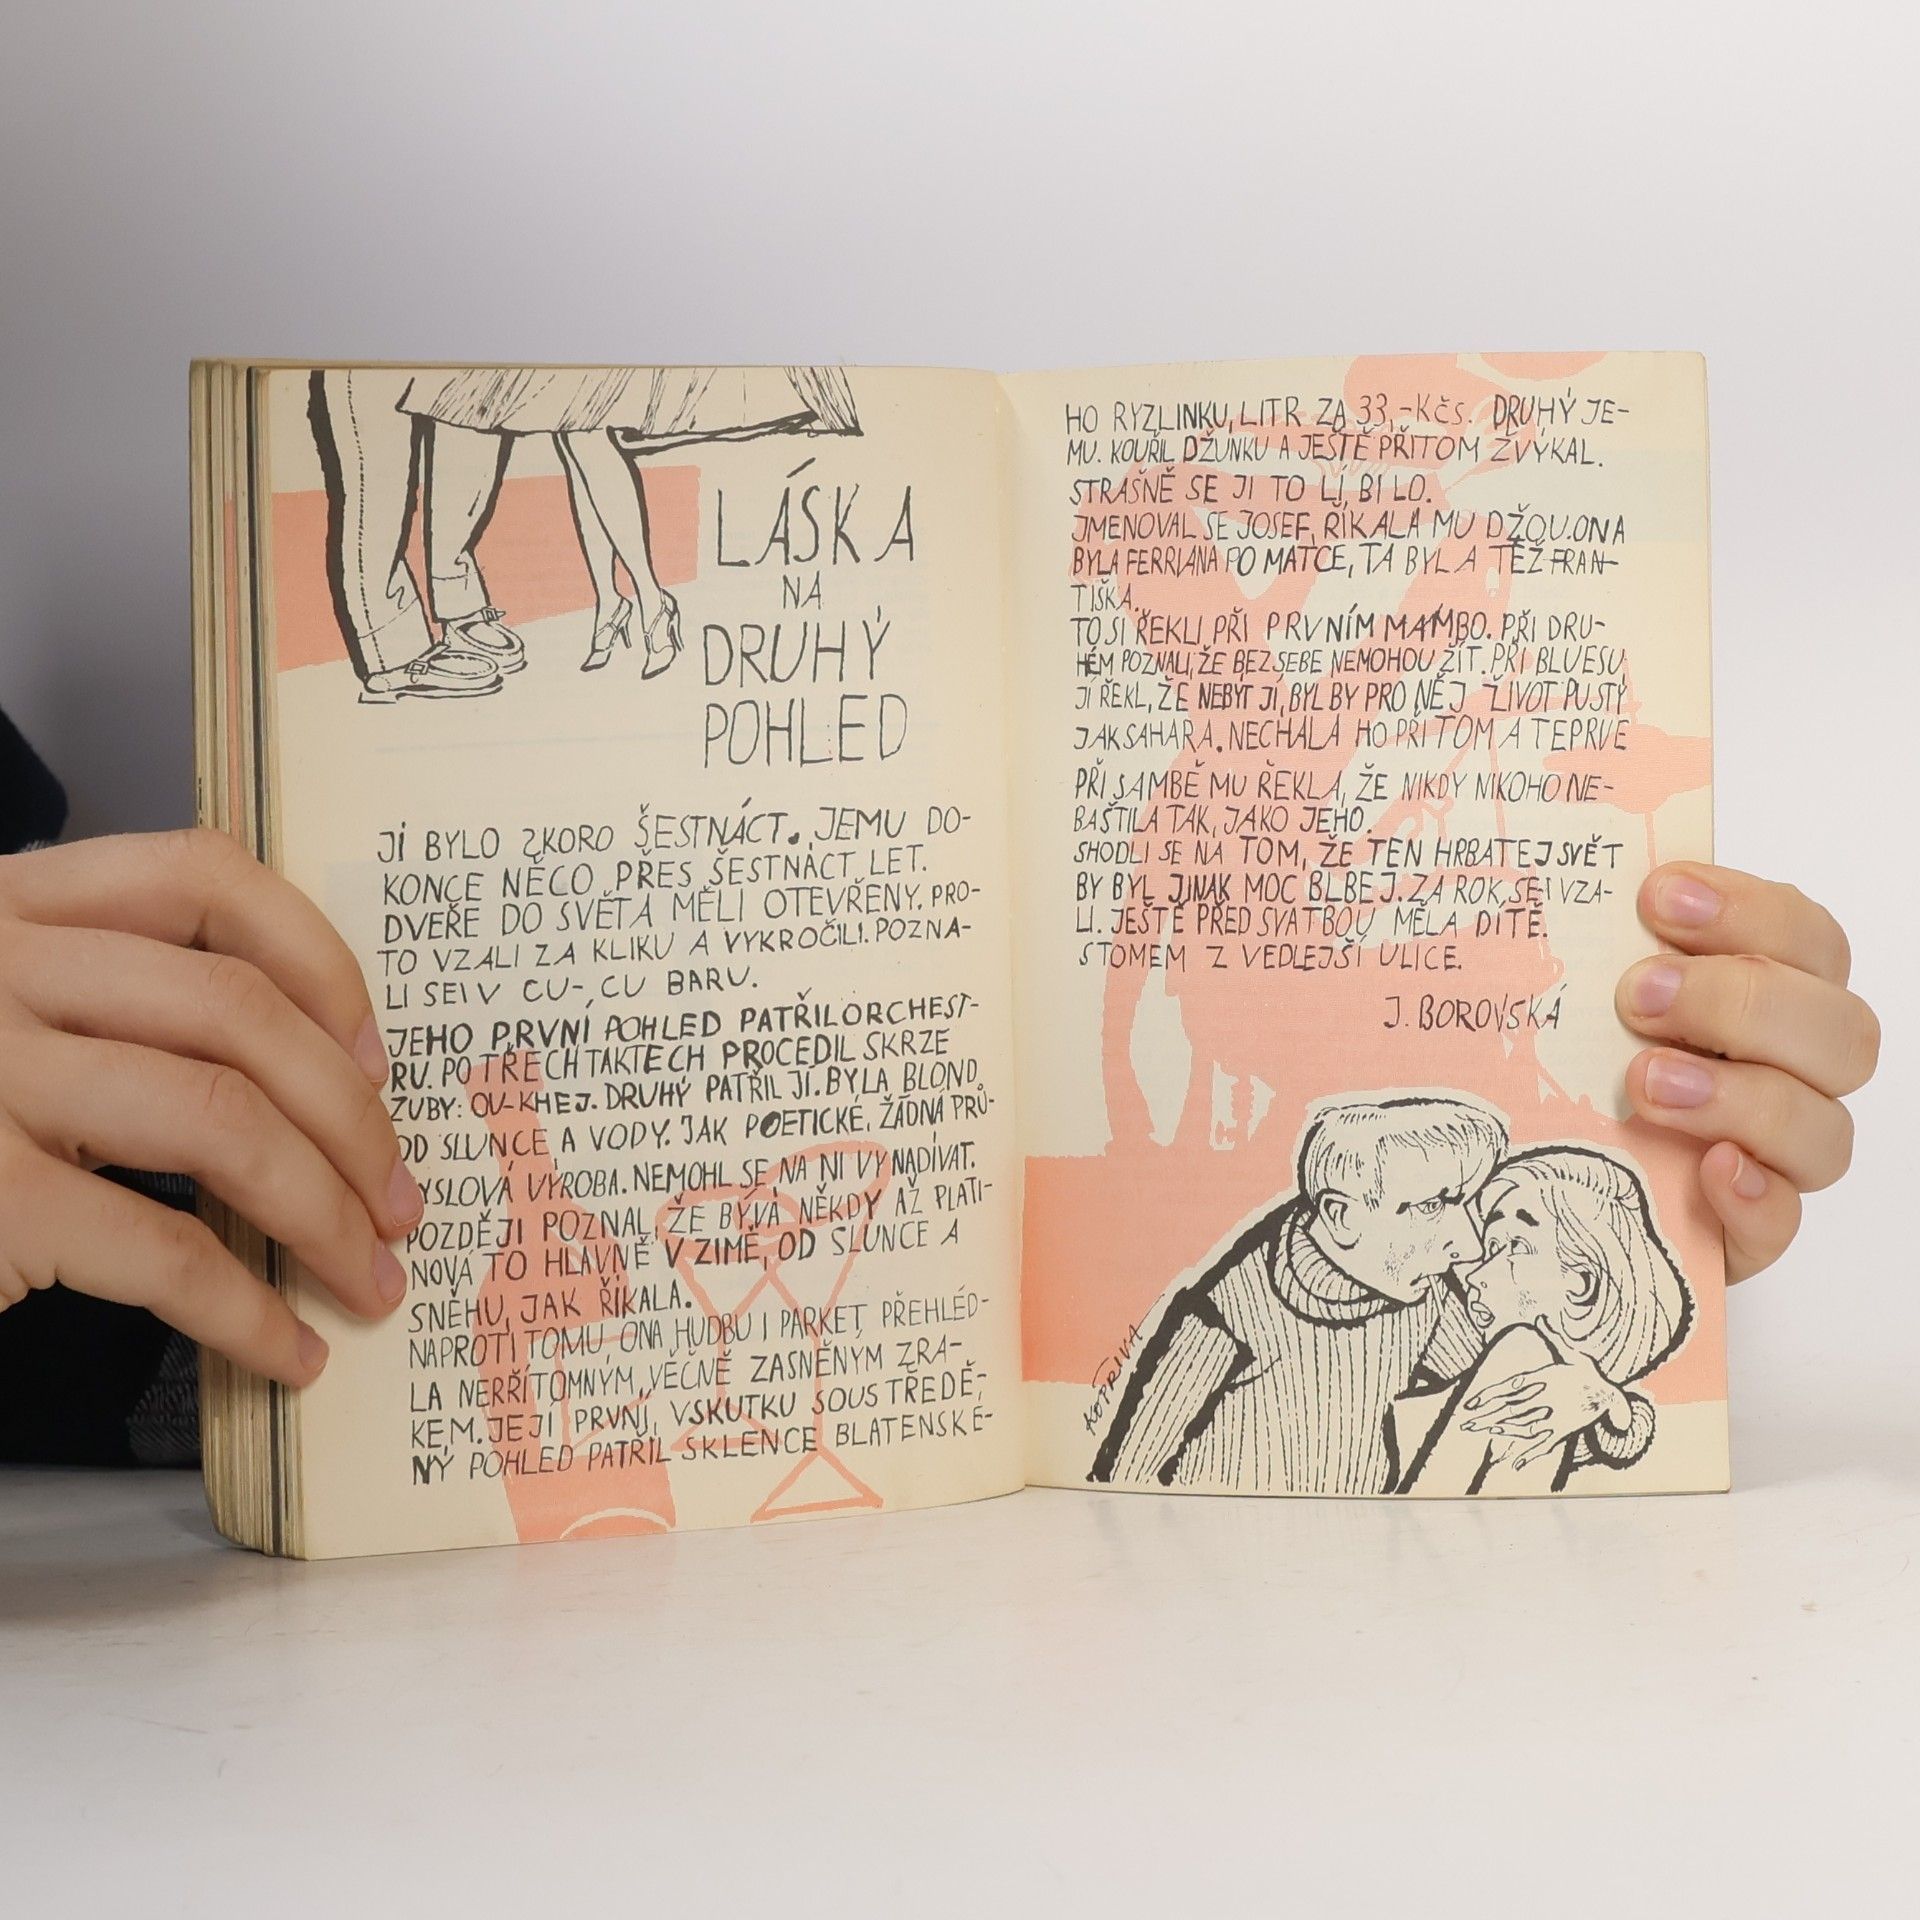 LÁSKA
NA
DRUHÝ
POHLED
JÍ BYLO SKORO ŠESTNÁCT. JEMU DO-
KONCE NĚCO PŘES ŠESTNÁCT LET.
DVEŘE DO SVĚTA MĚLI OTEVŘENY. PRO-
TO VZALI ZA KLIKU A VYKROČILI. POZNA-
LI SE I V CU-CU BARU.
JEHO PRVNÍ POHLED PATŘIL ORCHEST-
RU. PO TŘECH TAKTECH PROCEDIL SKRZE
ZUBY: OU-KHEJ. DRUHÝ PATŘIL JÍ. BYLA BLOND
OD SLUNCE A VODY. JAK POETICKÉ, ŽÁDNÁ PRŮ-
YSLOVÁ VÝROBA. NEMOHL SE NA NI VYNADÍVAT.
POZDĚJI POZNAL, ŽE BÝVÁ NĚKDY AŽ PLATI-
NOVÁ TO HLAVNĚ V ZIMĚ, OD SLUNCE A
SNĚHU, JAK ŘÍKALA.
NAPROTI TOMU, ONA HUDBU I PARKET PŘEHLÉD-
LA NEPŘÍTOMNÝM, VĚČNĚ ZASNĚNÝM ZRA-
KEM. JEJÍ PRVNÍ, VSKUTKU SOUSTŘEDĚ-
NÝ POHLED PATŘIL SKLENCE BLATENSKÉ-
HO RYZLINKU, LITR ZA 33,-KČS. DRUHÝ JE-
MU. KOUŘIL DŽUNKU A JEŠTĚ PŘITOM ŽVÝKAL.
STRAŠNĚ SE JI TO LÍBILO.
JMENOVAL SE JOSEF, ŘÍKALA MU DŽOU. ONA
BYLA FERRIANA PO MATCE, TA BYLA TÉŽ FRAN-
TIŠKA.
TO SI ŘEKLI PŘI PRVNÍM MAMBO. PŘI DRU-
HÉM POZNALI, ŽE BEZ SEBE NEMOHOU ŽÍT. PŘI BLUESU
JÍ ŘEKL, ŽE NEBÝT JÍ, BYL BY PRO NĚJ ŽIVOT PUSTÝ
JAK SAHARA. NECHALA HO PŘI TOM A TEPRVE
PŘI SAMBĚ MU ŘEKLA, ŽE NIKDY NIKOHO NE-
BAŠTILA TAK, JAKO JEHO.
SHODLI SE NA TOM, ŽE TEN HRBATEJ SVĚT
BY BYL JINAK MOC BLBEJ. ZA ROK SE I VZA-
LI. JEŠTĚ PŘED SVATBOU MĚLA DÍTĚ.
S TOMEM Z VEDLEJŠÍ ULICE.
J. BOROVSKÁ
KOPŘIVA